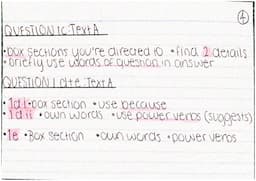 4
QUESTION 1c: Text A
•box sections you're directed to •find 2 details
•briefly use words of question in answer
QUESTION 1 d+e Text A
•1d i •box section •use because
1d ii •own words •use power verbs (suggests)
•1e •Box section •own words •power verbs